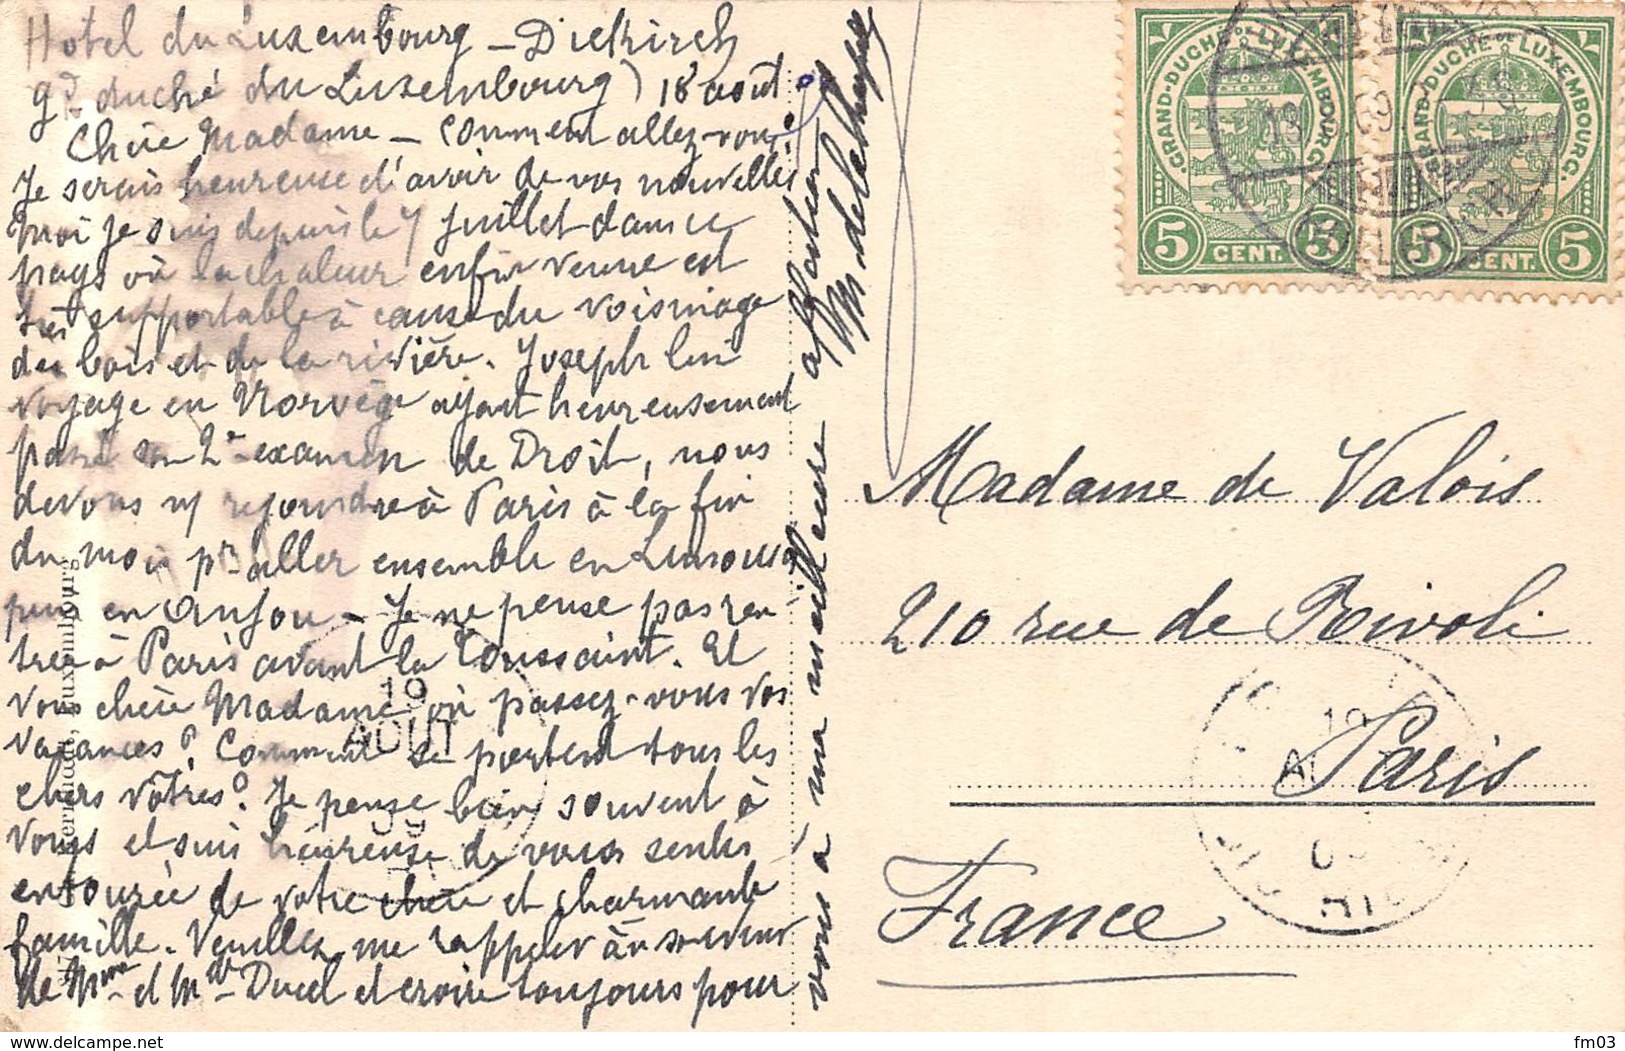 Hôtel du Luxembourg – Diekirch
gd duché du Luxembourg) 18 août
Chère Madame – comment allez-vous
Je serais heureuse d'avoir de vos nouvelles
Moi je suis depuis le 7 juillet dans ce
pays où la chaleur enfin venue est
très supportable à cause du voisinage
des bois et de la rivière. Joseph lui
voyage en Norvège ayant heureusement
passé son 2e examen de Droit, nous
devons n/ rejoindre à Paris à la fin
du mois pr aller ensemble en
puis en Anjou – Je ne pense pas ren-
trer à Paris avant la Toussaint. Et
vous chère Madame où passez-vous vos
vacances? Comment se portent tous les
chers vôtres? Je pense bien souvent à
vous et suis heureuse de vous sentir
entourée de votre chère et charmante
famille. Veuillez me rappeler au souvenir
de Mme et Mr Ducel et croire toujours pour
vous à ma meilleure affection
GRAND-DUCHÉ DE LUXEMBOURG.
5 CENT. 5
GRAND-DUCHÉ DE LUXEMBOURG.
5 CENT. 5
Madame de Valois
210 rue de Rivoli
Paris
France
19
AOUT
09
19
Luxembourg
www.delcampe.net
fm03